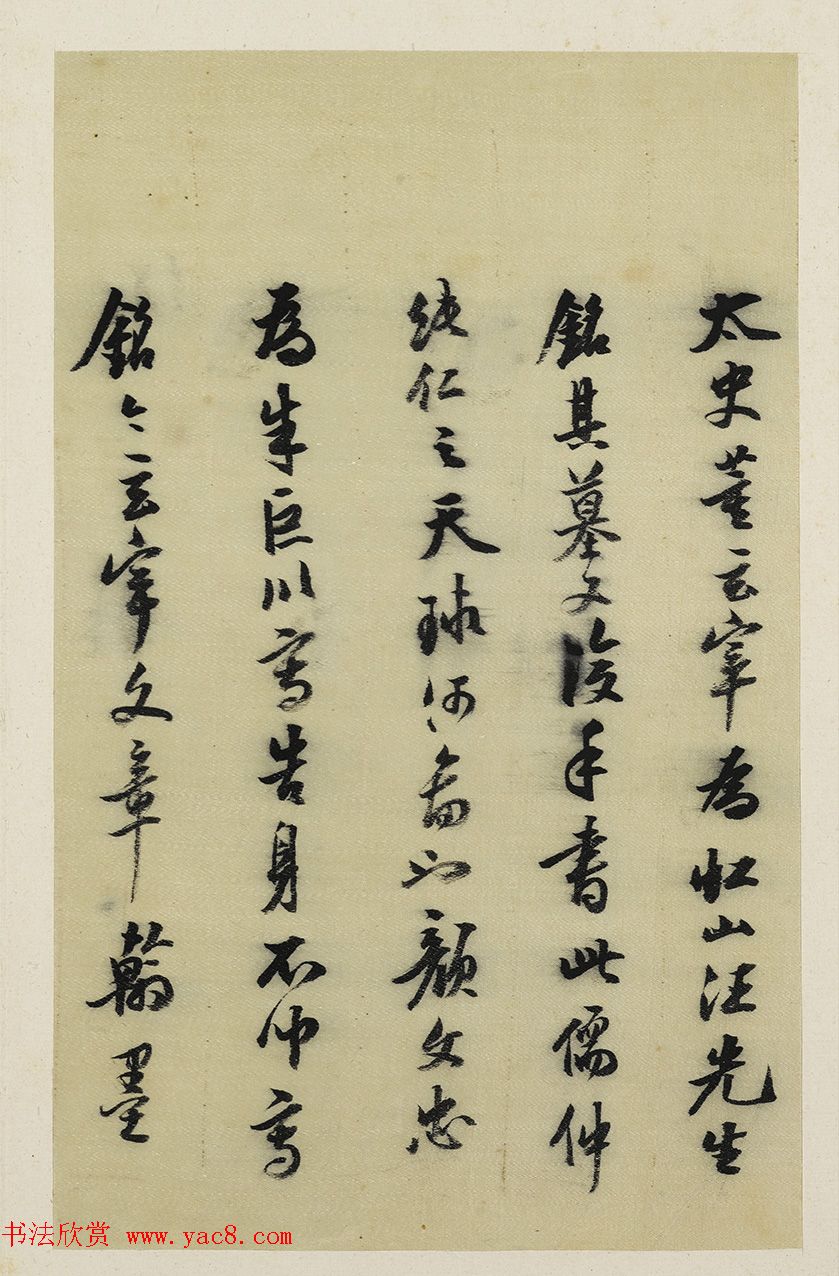 太史董玄宰為帎山汪先生
銘其墓文復手書此儒仲
純仁之天球河圖也顏文忠
為朱巨川寫告身不少寫
銘今玄宰文章翰墨
书法欣赏 www.yac8.com